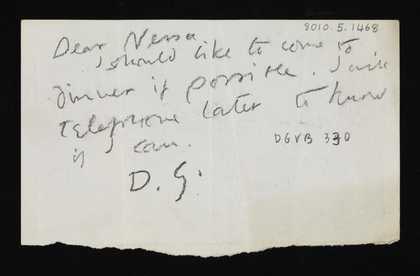 8010.5.1468
Dear Nessa
I should like to come to
dinner if possible. I will
telephone later to know
if I can.
DGVB 330
D. G.